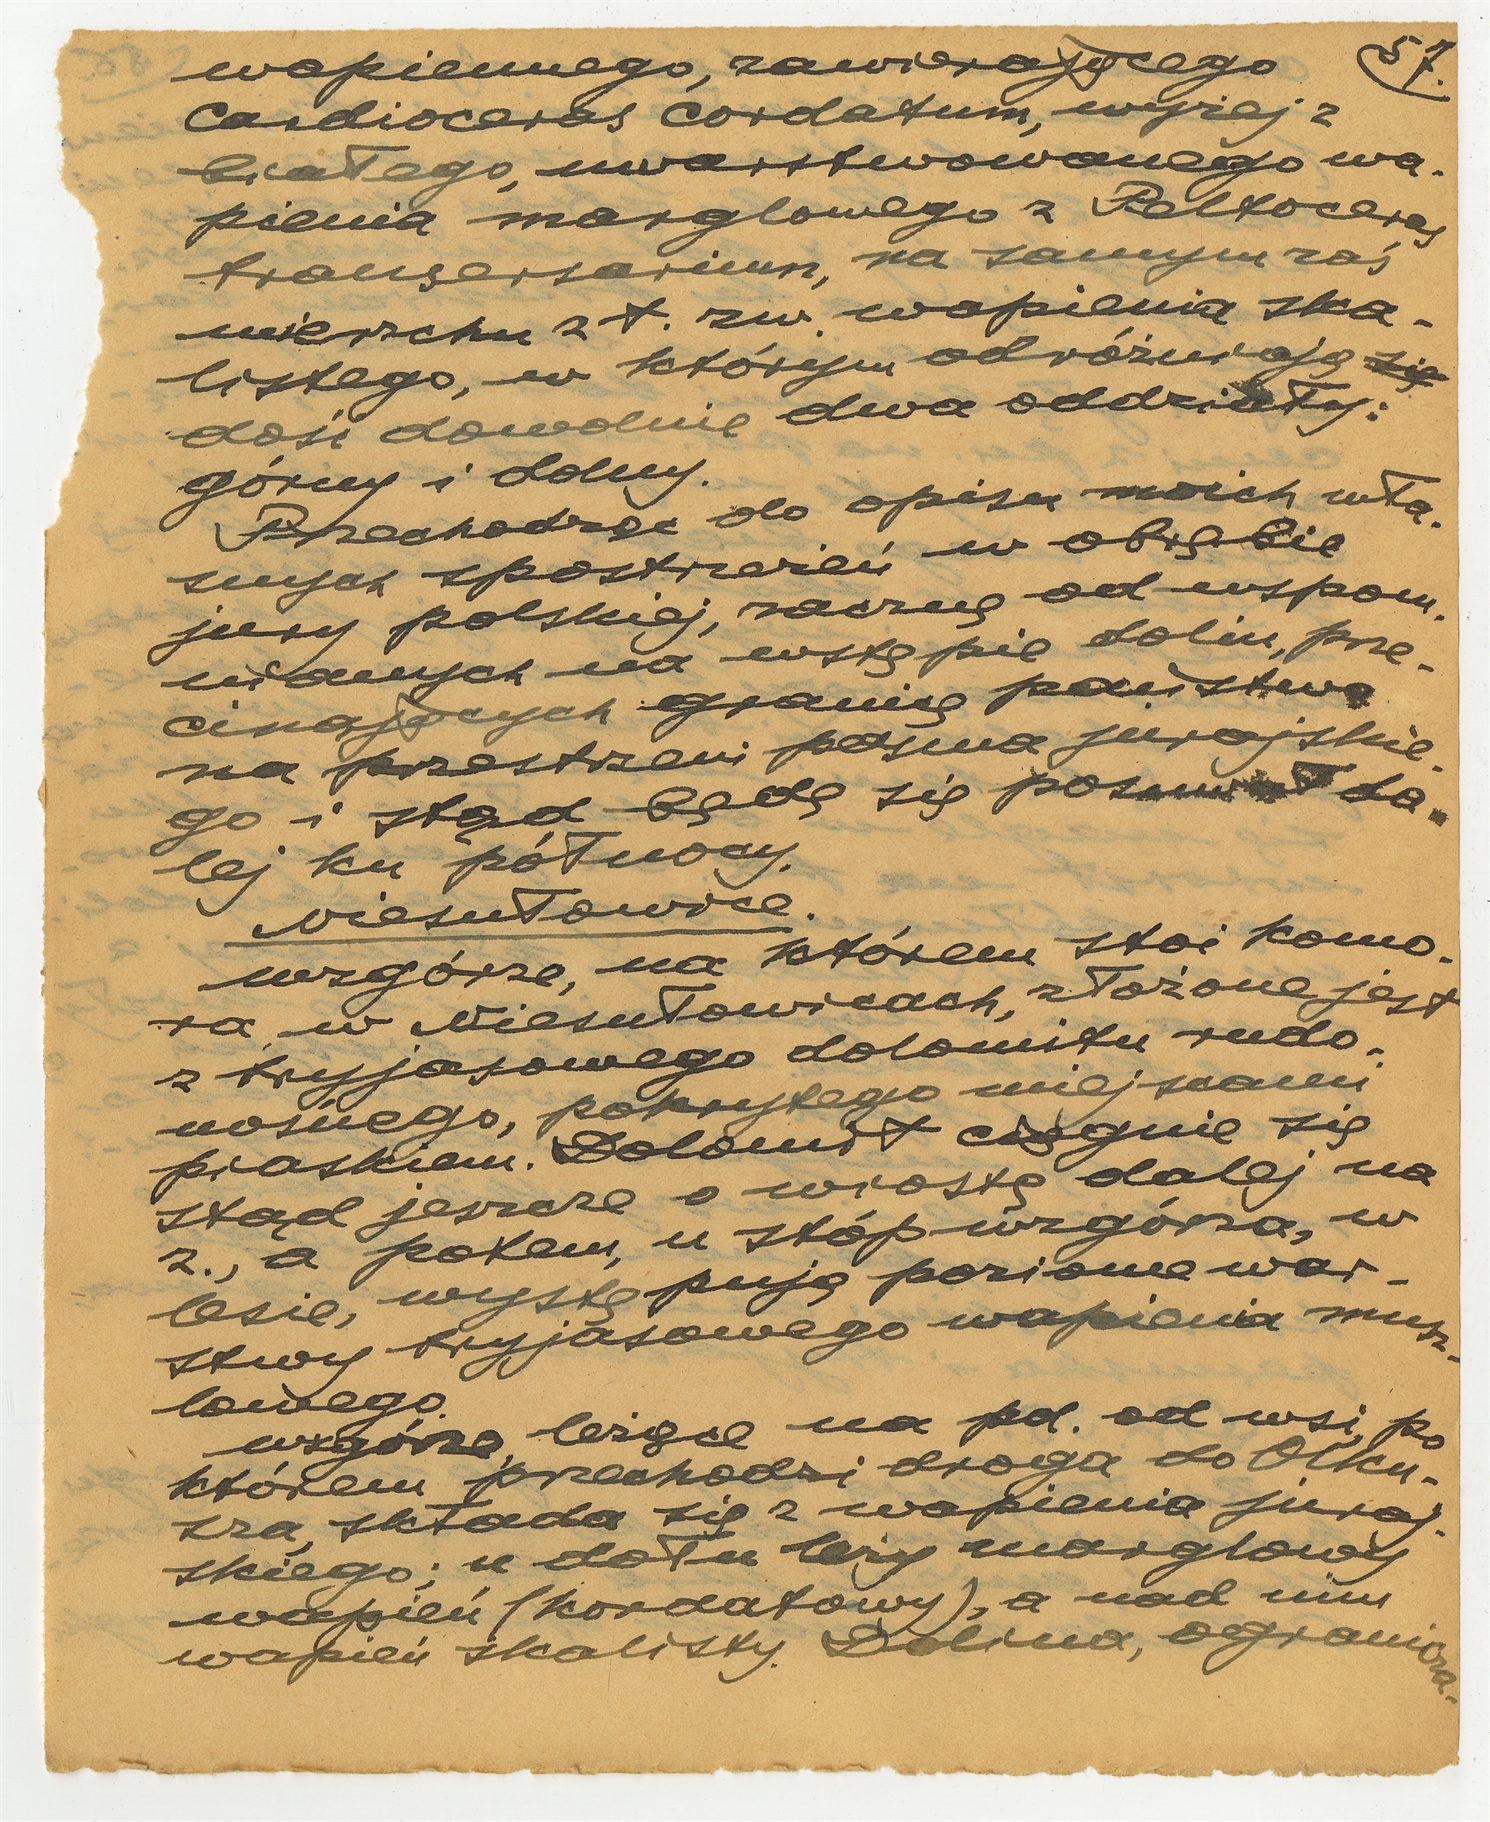 57.
wapiennego, zawierającego
Cardioceras cordatum, wyżej z
białego, uwarstwowanego wa-
pienia marglowego z Peltoceras
transversarium, na samym zaś
wierzchu z t. zw. wapienia ska-
listego, w którym odróżniają się
dość dowolnie dwa oddziały:
górny i dolny.
Przechodząc do opisu moich wła-
snych spostrzeżeń w obrębie
jury polskiej, zacznę od wspom-
nianych na wstępie dolin, prze-
cinających granicę państwa
na przestrzeni pasma jurajskie-
go i stąd będę się posuwał da-
lej ku północy.
Niesułowice.
Wzgórze, na którem stoi komo-
ra w Niesułowicach, złożone jest
z tryjasowego dolomitu rudo-
nośnego, pokrytego miejscami
piaskiem. Dolomit ciągnie się
stąd jeszcze o wiorstę dalej na
z., a potem, u stóp wzgórza, w
lesie, występują poziome war-
stwy tryjasowego wapienia musz-
lowego.
Wzgórze, leżące na pd. od wsi, po
którem przechodzi droga do Olku-
sza, składa się z wapienia juraj-
skiego; u dołu leży marglowy
wapień (kordatowy), a nad nim
wapień skalisty. Dolina, ogranicza-